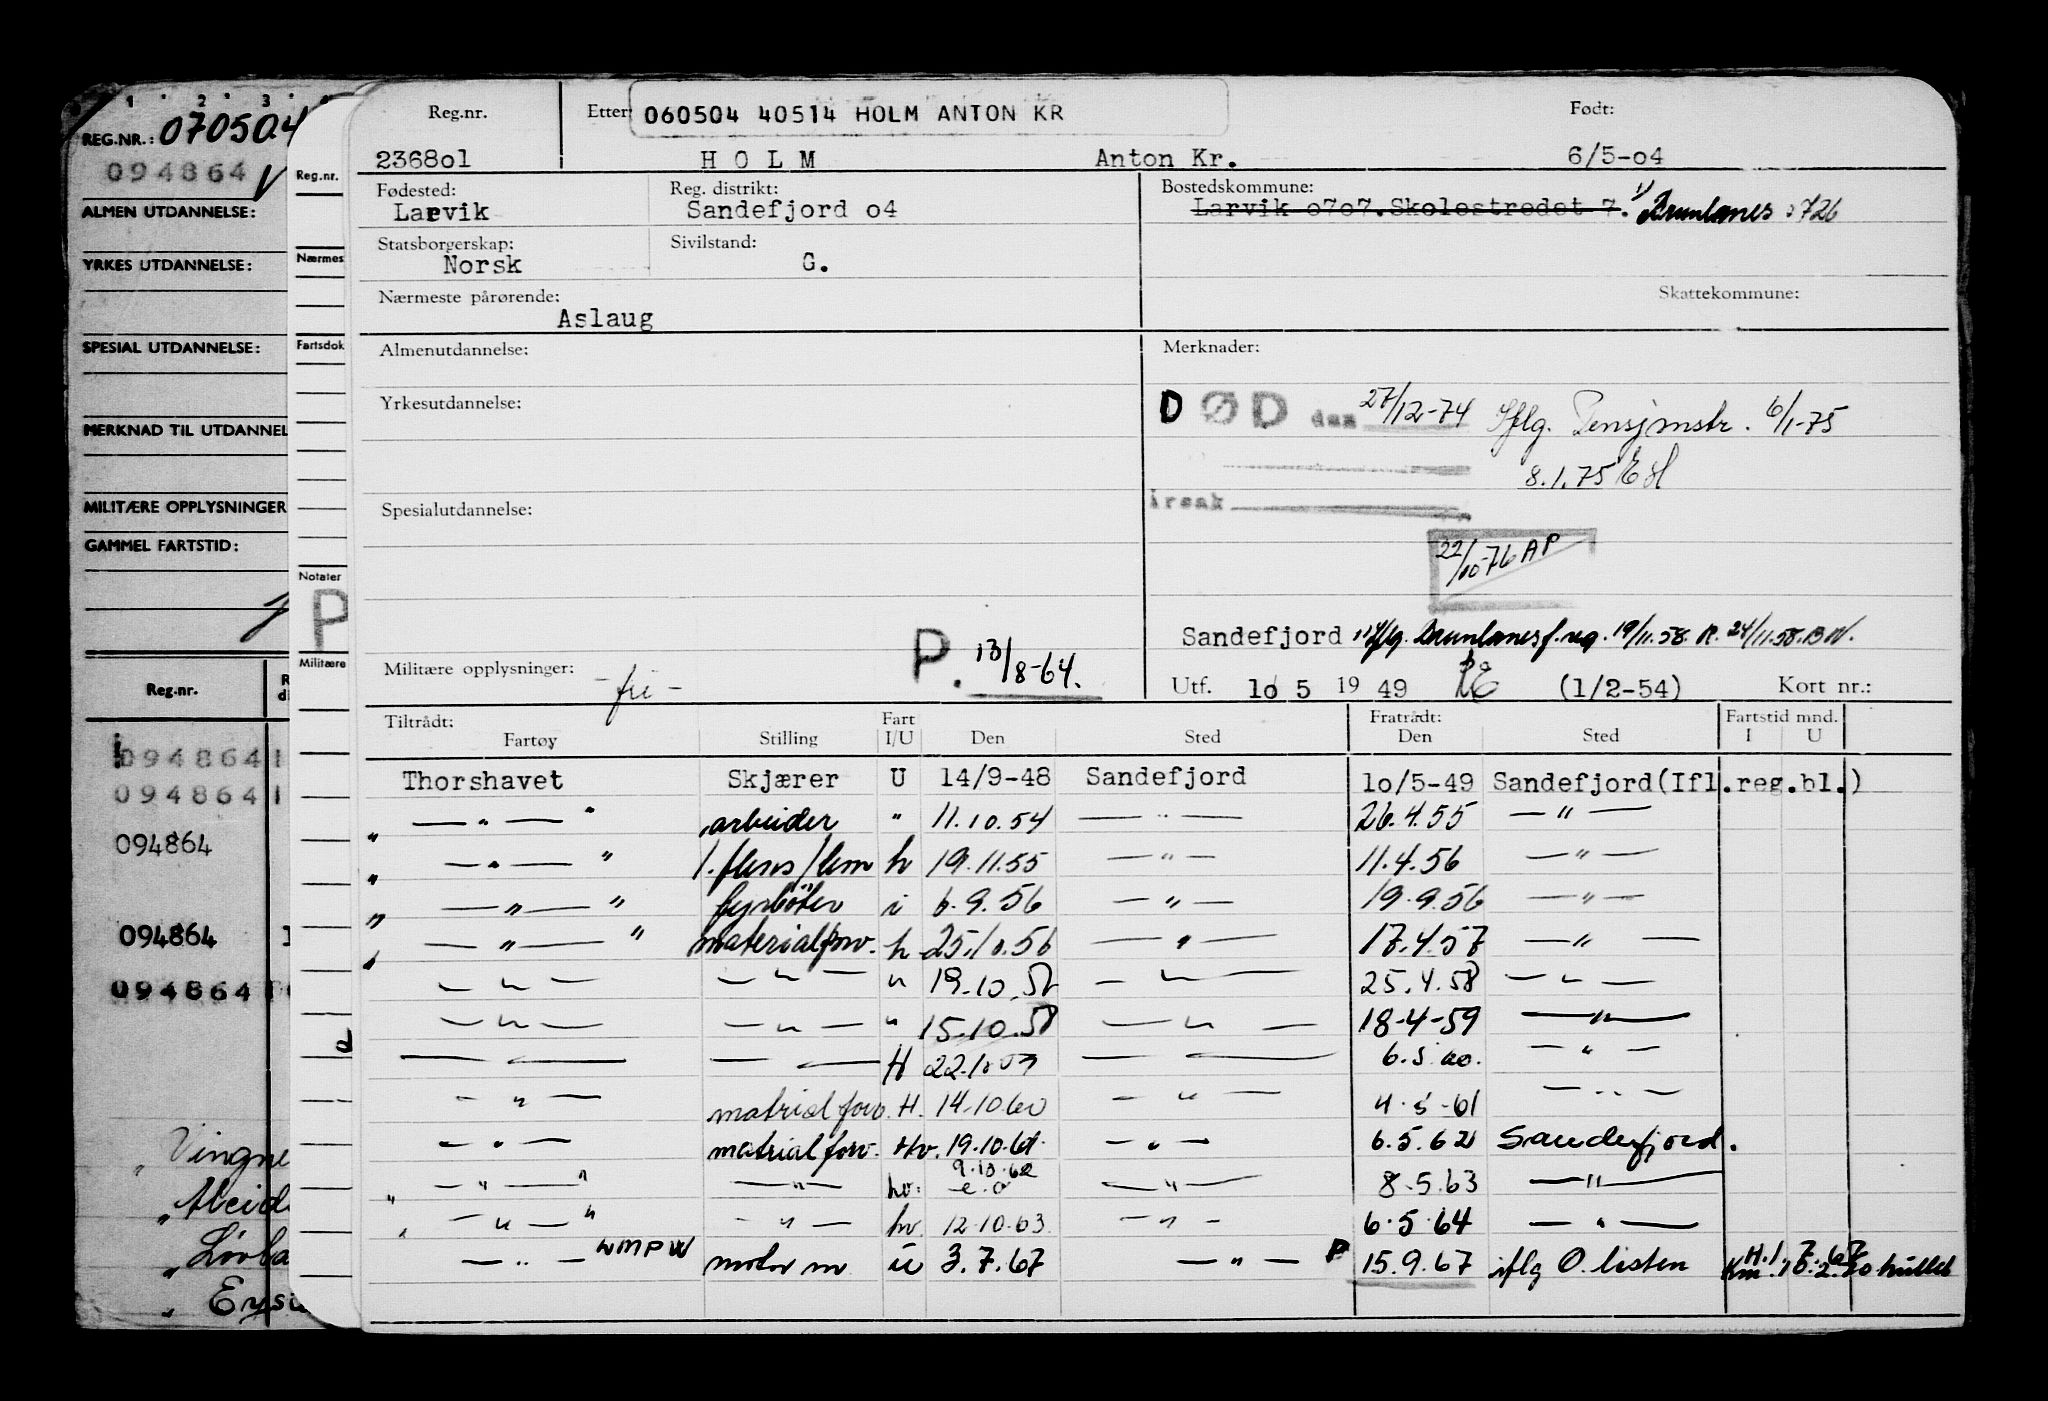 1 2 3
REG.NR.: 070504
094864
ALMEN UTDANNELSE:
YRKES UTDANNELSE:
SPESIAL UTDANNELSE:
MERKNAD TIL UTDANNEL
MILITÆRE OPPLYSNINGER
GAMMEL FARTSTID:
Reg.nr.
094864
094864
094864
094864
094864
Vingne
Reg.nr.
Nærmes
Fartsdok
Notater
P
Militære
Reg.nr. Etter: 060504 40514 HOLM ANTON KR Født:
236801 HOLM Anton Kr. 6/5-04
Fødested: Reg. distrikt: Bostedskommune:
Larvik Sandefjord 04 Larvik 0707.Skolestredet 7. 1) Brunlanes 0726
Statsborgerskap: Sivilstand:
Norsk G.
Nærmeste pårørende: Skattekommune:
Aslaug
Almenutdannelse: Merknader:
Yrkesutdannelse: DØD den 27/12-74 Iflg. Pensjonstr. 6/1-75
8.1.75
Spesialutdannelse: årsak
22/10-76 AP
Sandefjord 1) Iflg. Brunlanes f.reg. 19/11.58. 24/11.58.
P. 13/8-64.
Militære opplysninger: -fri-
Utf. 10 5 1949 (1/2-54) Kort nr.:
Tiltrådt: Fart Fratrådt: Fartstid mnd.
Fartøy Stilling I/U Den Sted Den Sted I U
Thorshavet Skjærer U 14/9-48 Sandefjord 10/5-49 Sandefjord(Ifl.reg.bl.)
" — " — " arbeider " 11.10.54 — " — 26.4.55 — " —
" — " — " 1. flens/lem h 19.11.55 — " — 11.4.56 — " —
" — " — " fyrbøter i 6.9.56 — " — 19.9.56 — " —
" — " — " materialforv. h 25.10.56 — " — 17.4.57 — " —
— " — — " — " 19.10.57 — " — 25.4.58 — " —
— " — — " — " 15.10.58 — " — 18-4-59 — " —
— " — — " — H 22.10.59 — " — 6.5.60. — " —
— " — matrial forv. H. 14.10.60 — " — 4.5-61 — " —
— " — matrial forv. Hv. 19.10.61 — " — 6.5.62 Sandefjord.
" — " — " — " — hv. 9.10.62 — " — 8.5.63 — " —
" — " — " — " — hv. 12.10.63. — " — 6.5.64 — " —
— " — motor m u 3.7.67 — " — P 15.9.67 iflg O.listen